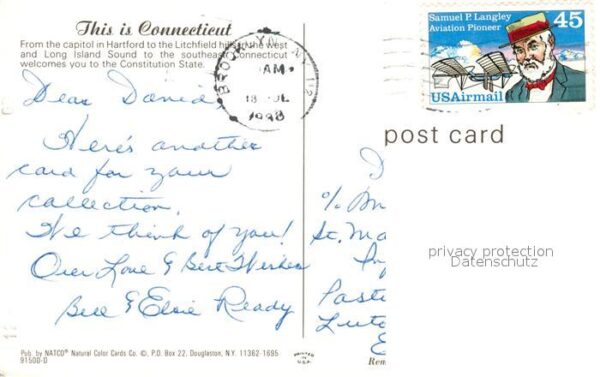 This is Connecticut
From the capitol in Hartford to the Litchfield hills in the west
and Long Island Sound to the southeast, Connecticut
welcomes you to the Constitution State.
BROOKLYN, NY 112
AM
18 JUL
1988
Samuel P. Langley 45
Aviation Pioneer
USAirmail
post card
Dear David
Here's another
card for your
collection.
We think of you!
Our Love & Best Wishes
Bill & Elsie Ready
%
St. Ma
Paste
Lute
E
privacy protection
Datenschutz
Pub. by NATCO® Natural Color Cards Co. ©, P.O. Box 22, Douglaston, N.Y. 11362-1695
91500-D
PRINTED IN U.S.A.
Rem